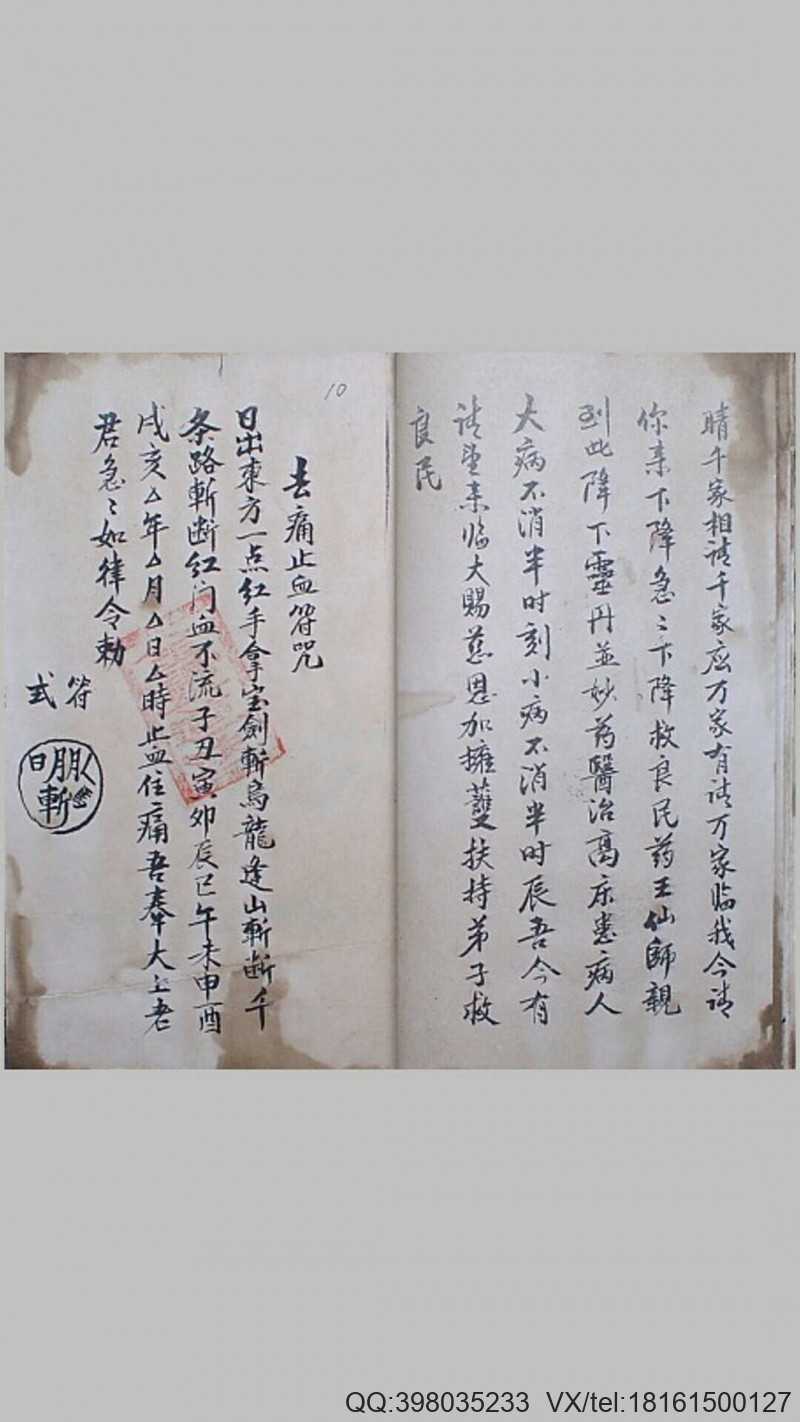 晴千家相請千家应万家有請万家临我今請
你亲下降急〻下降救良民药王仙師親
到此降下靈丹並妙药醫治高床患病人
大病不消半时刻小病不消半时辰吾今有
請望亲临大賜慈恩加擁護扶持弟子救
良民
10
去痛止血符咒
日出東方一点红手拿宝劍斬烏龍逢山斬断千
条路斬断红门血不流子丑寅卯辰巳午未申酉
戌亥厶年厶月厶日厶時止血住痛吾奉大上老
君急〻如律令勅
符
式
明
日
斬
QQ:398035233 VX/tel:18161500127